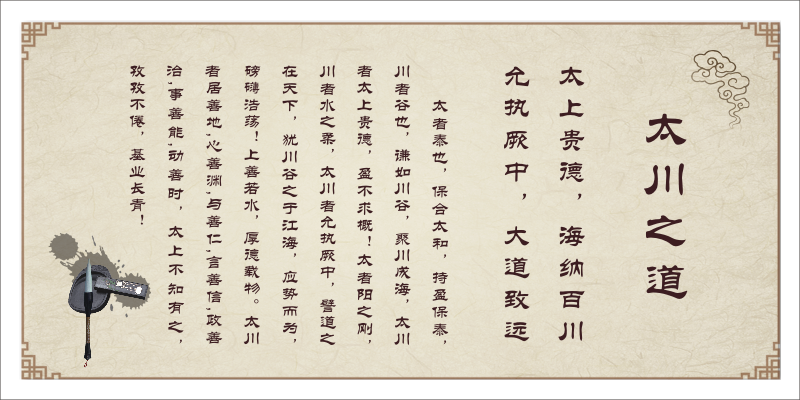 太川之道
太上贵德，海纳百川
允执厥中，大道致远
太者泰也，保合太和，持盈保泰，
川者谷也，谦如川谷，聚川成海，太川
者太上贵德，盈不求概！太者阳之刚，
川者水之柔，太川者允执厥中，譬道之
在天下，犹川谷之于江海，应势而为，
磅礴浩荡！上善若水，厚德载物。太川
者居善地,心善渊,与善仁,言善信,政善
治,事善能,动善时，太上不知有之，
孜孜不倦，基业长青！